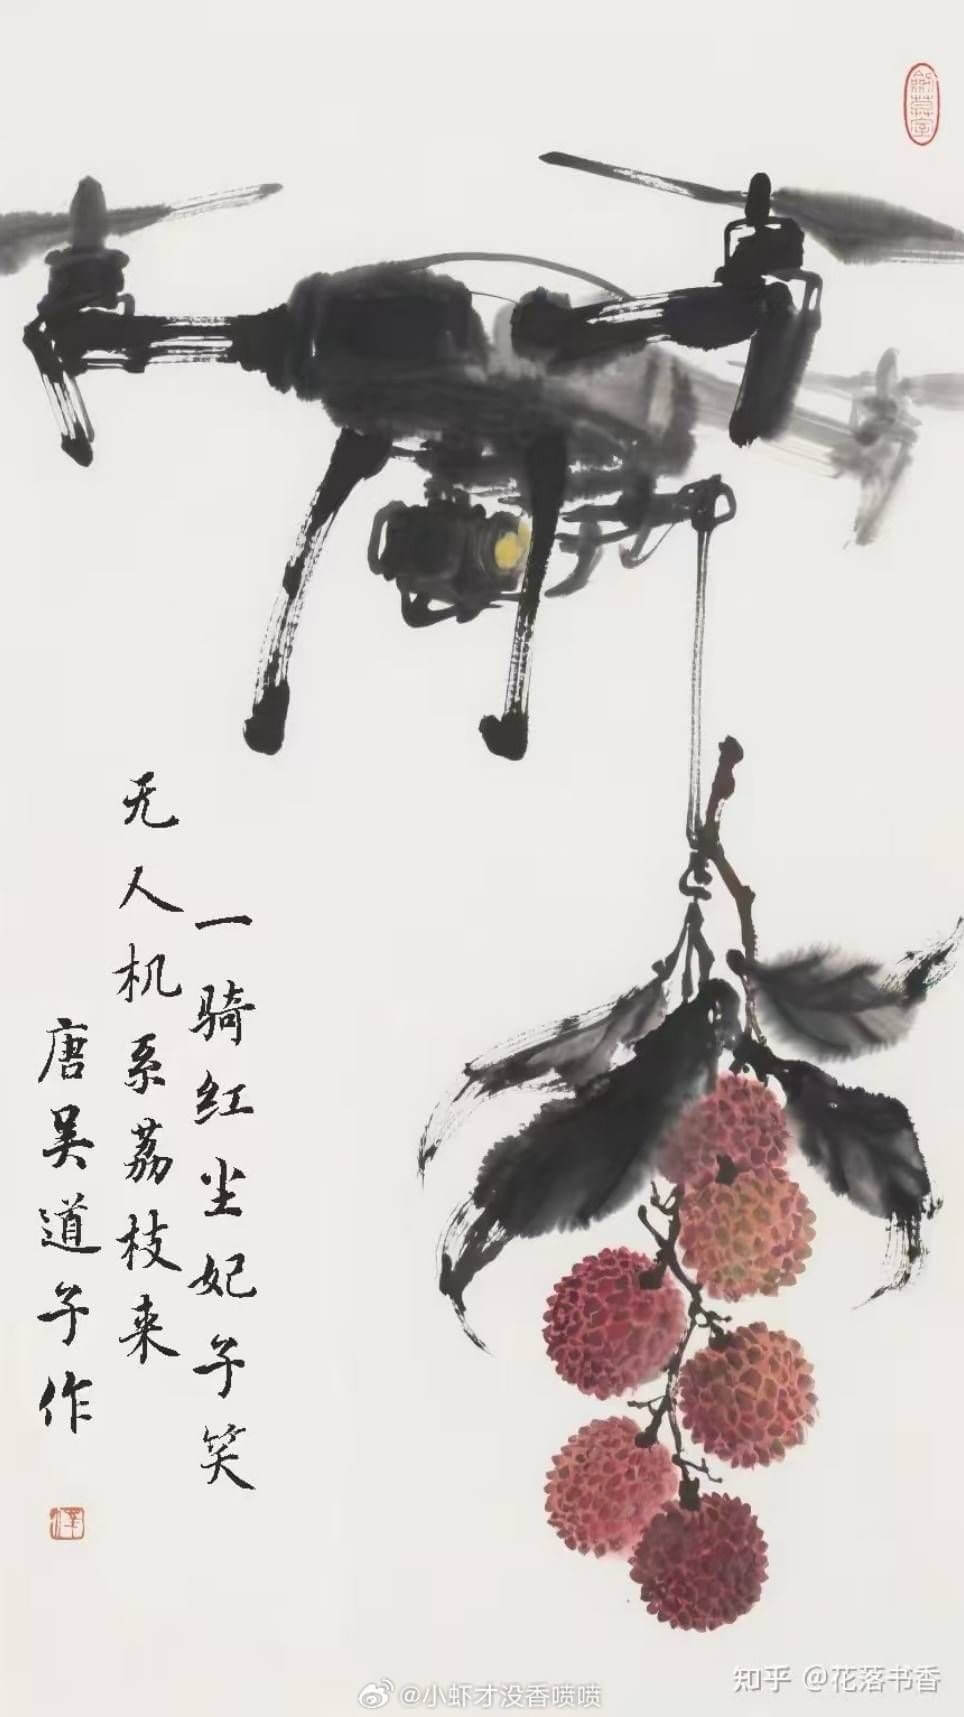 一骑红尘妃子笑
无人机系荔枝来
唐吴道子作
@小虾才没香喷喷
知乎 @花落书香